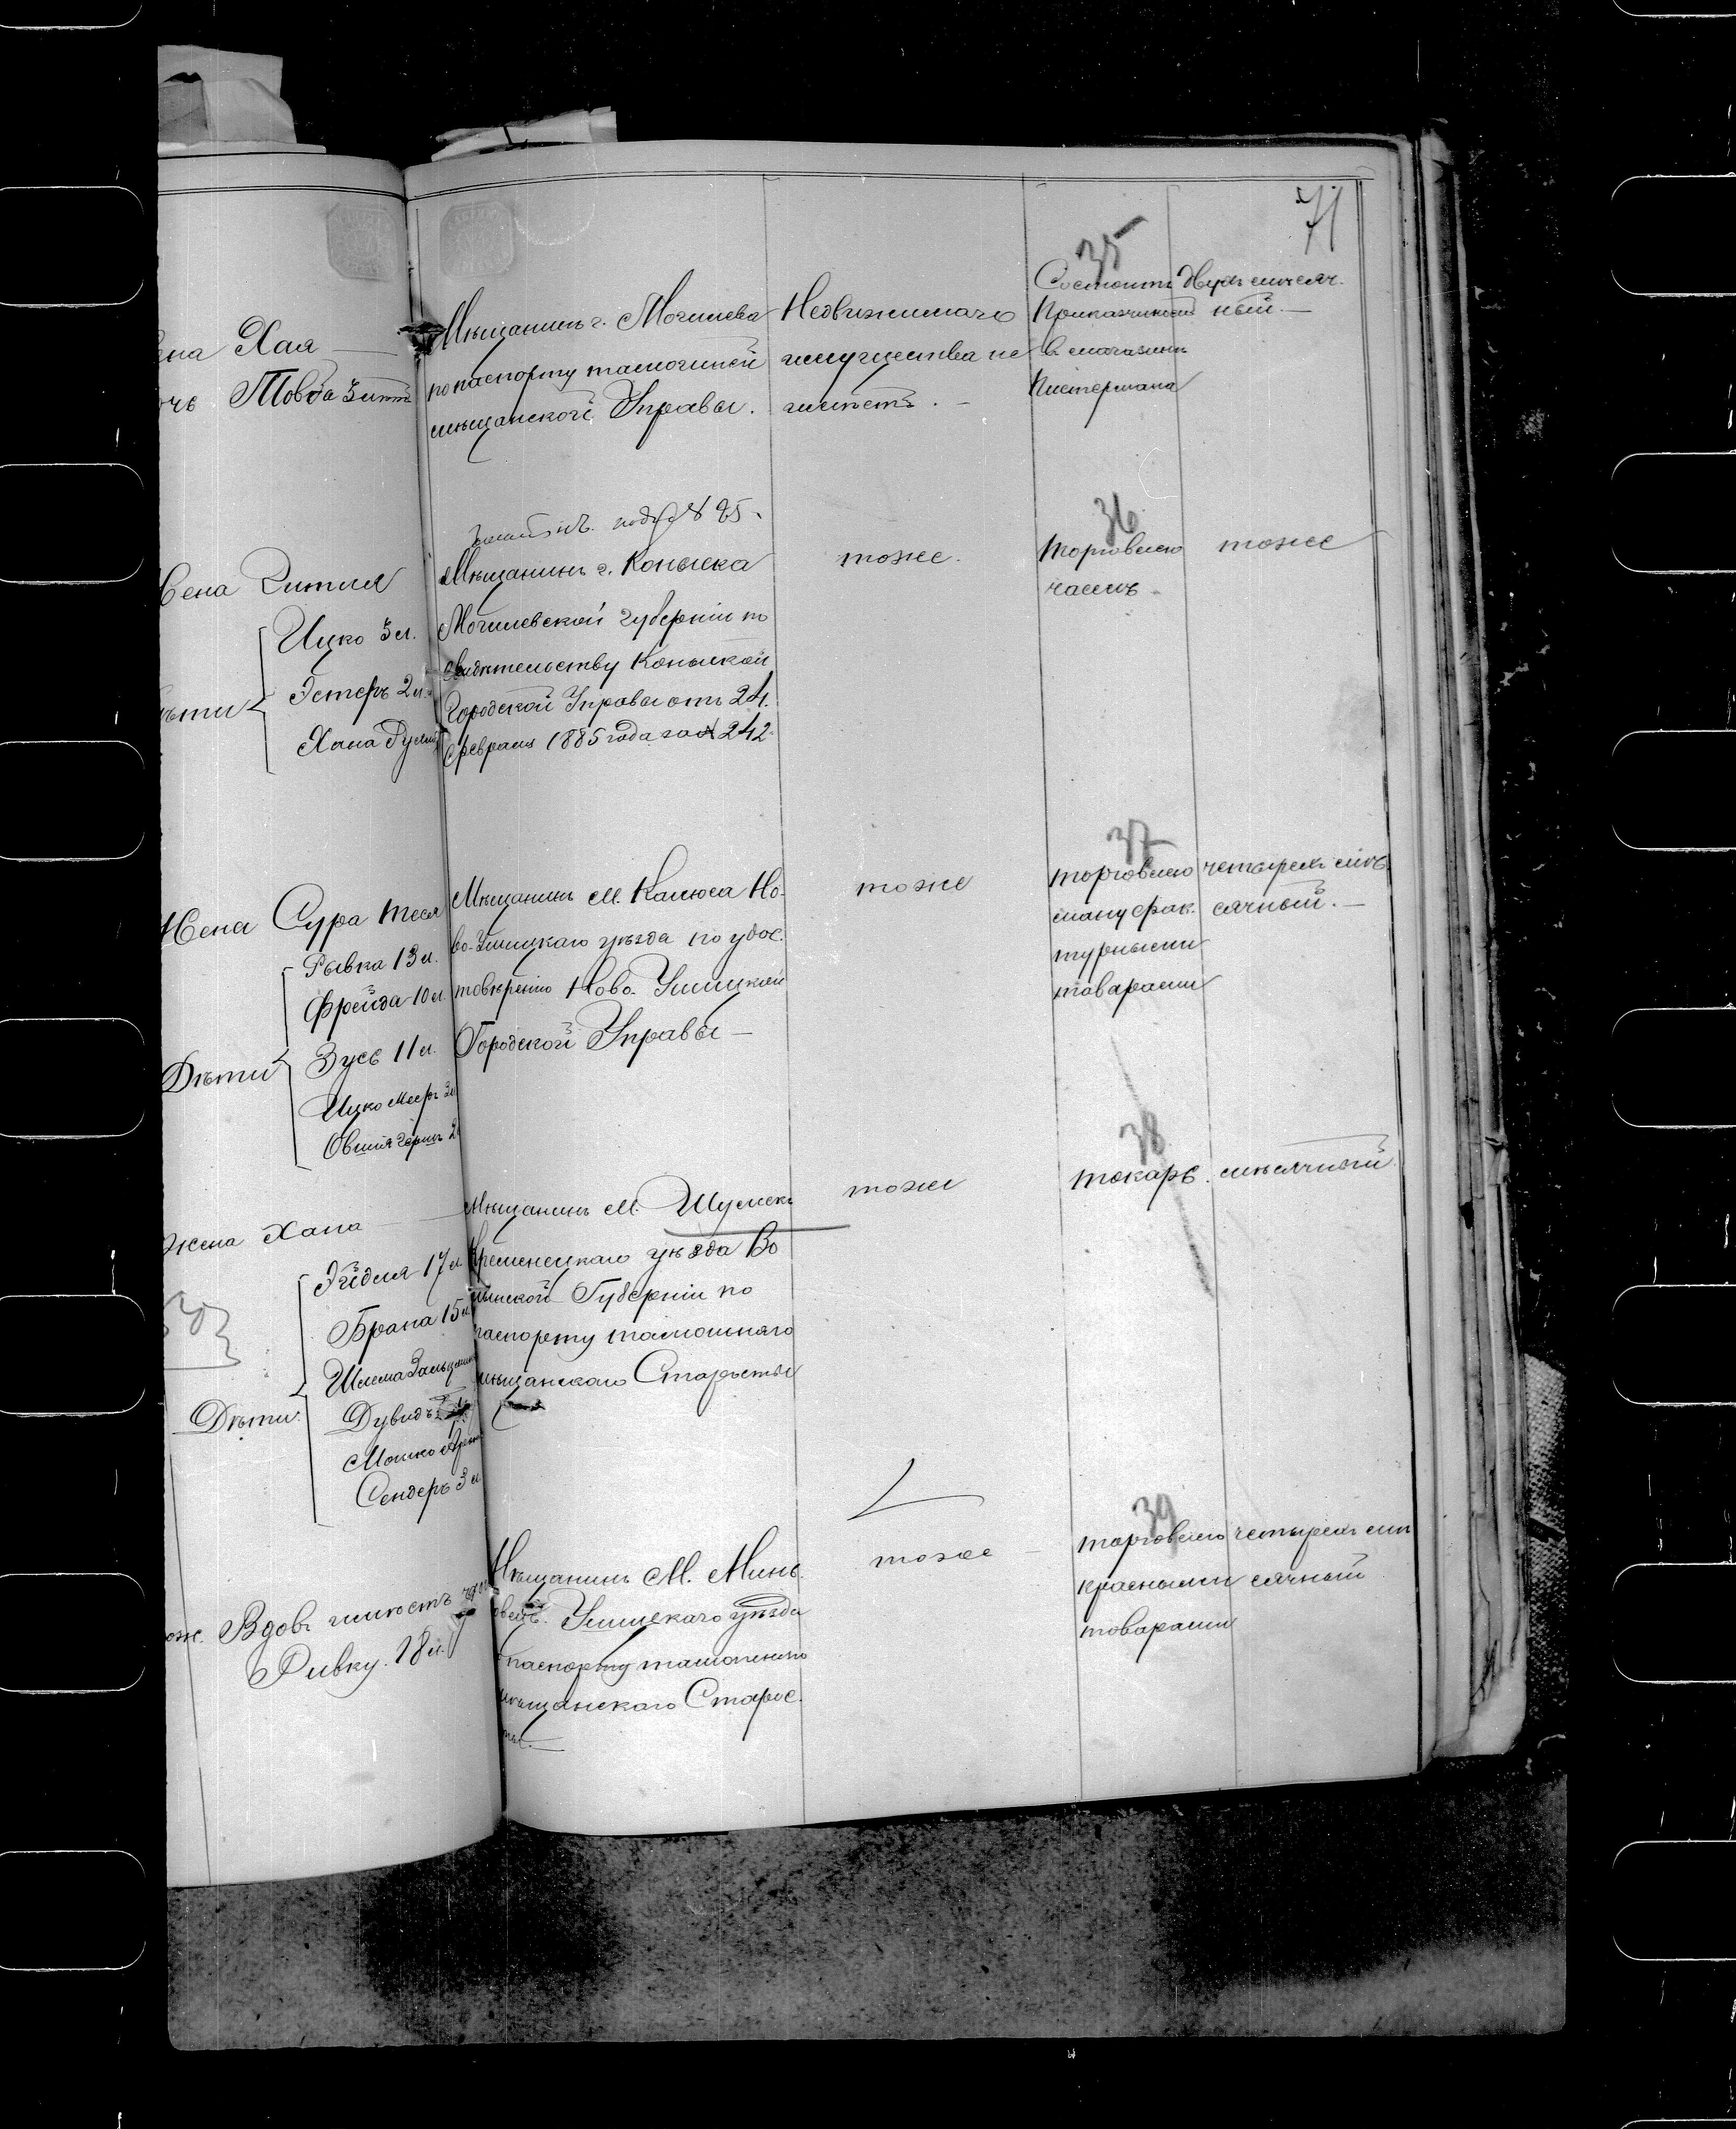 71
35
Хая
Товба 3 лѣтъ
Мѣщанинъ г. Могилева
по паспорту тамошней
мѣщанской Управы.
Недвижимаго
имущества не
имѣетъ. –
Состоитъ
Прикащикомъ
въ магазинѣ
Пистермана
двухмѣсяч.
ный. –
36
Жена Читля
Ицко 3 л.
Эстеръ 2 л.
Хана
Мѣщанинъ г. Копыска
Могилевской губерніи по
свидѣтельству Копыской
Городской Управы отъ 24
февраля 1885 года за № 242
тоже.
торговлею
чаемъ.
тоже
37
Жена Сура Теся
Рывка 13 л.
Фрейда 10 л.
Зусь 11 л.
Дѣти
Ицко Мееръ 3 л
Овшія Гершъ 2
Мѣщанинъ м. Калюса Но-
во-Ушицкаго уѣзда по удос.
товѣренію Ново-Ушицкой
Городской Управы –
тоже
торговлею
мануфак.
турными
товарами
четырехмѣ
сячный. –
38
жена Хана
Эйдля 17 л
Брана 15 л
Шлема
Дѣти
Дувидъ
Мошко
Сендеръ 3 л
Мѣщанинъ м. Шумска
Кременецкаго уѣзда Во
лынской Губерніи по
паспорту тамошняго
мѣщанскаго Старосты
тоже
токарь.
мѣсячный
39
Вдовъ имѣетъ
Ривку. 18 л.
Мѣщанинъ м. Минь.
ковецъ. Ушицкаго уѣзда
паспорту тамошняго
мѣщанскаго Старос.
ты. –
тоже –
торговлею
красными
товарами
четырехмѣ
сячный